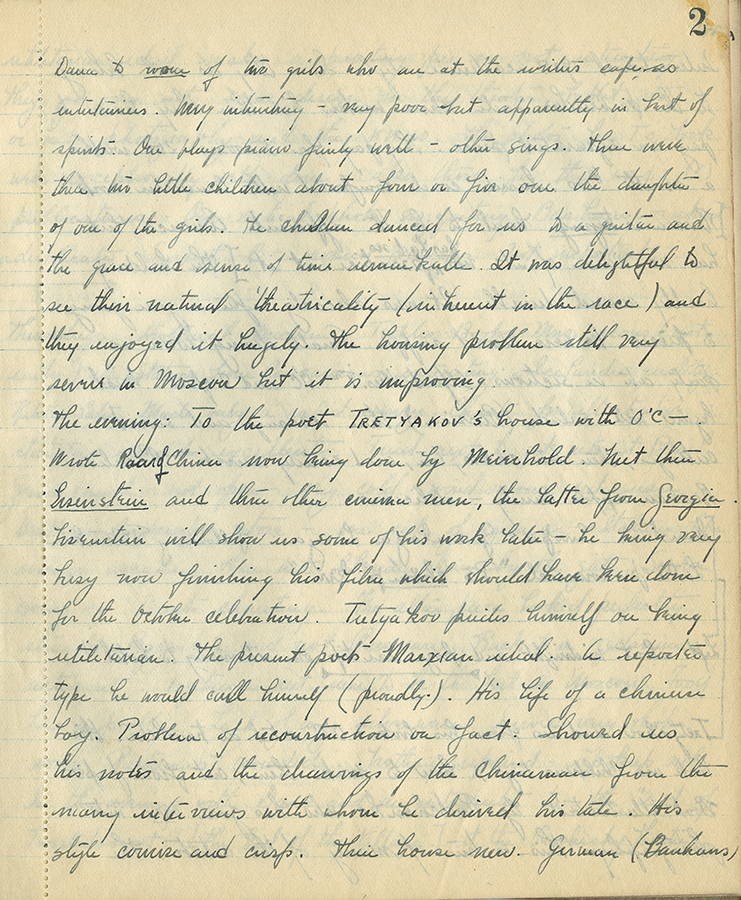 2
Dana to room of two girls who are at the writers cafe, as
entertainers. Very interesting – very poor but apparently in best of
spirits. One plays piano fairly well – other sings. There were
there two little children about four or five one the daughter
of one of the girls. The children danced for us to a guitar and
the grace and sense of time remarkable. It was delightful to
see their natural theatricality (inherent in the race) and
they enjoyed it hugely. The housing problem still very
severe in Moscow but it is improving.
The evening: To the poet TRETYAKOV'S house with O'C—.
Wrote Roar of China now being done by Meierhold. Met there
Eisenstein and three other cinema men, the latter from Georgia.
Eisenstein will show us some of his work later – he being very
busy now finishing his film which should have been done
for the October celebration. Tretyakov prides himself on being
utilitarian. The present poets Marxian ideal. A reporter
type he would call himself (proudly). His life of a chinese
boy. Problem of reconstruction on fact. Showed us
his notes and the drawings of the Chinaman from the
many interviews with whom he derived his tale. His
style concise and crisp. Their house new. German (Bauhaus)